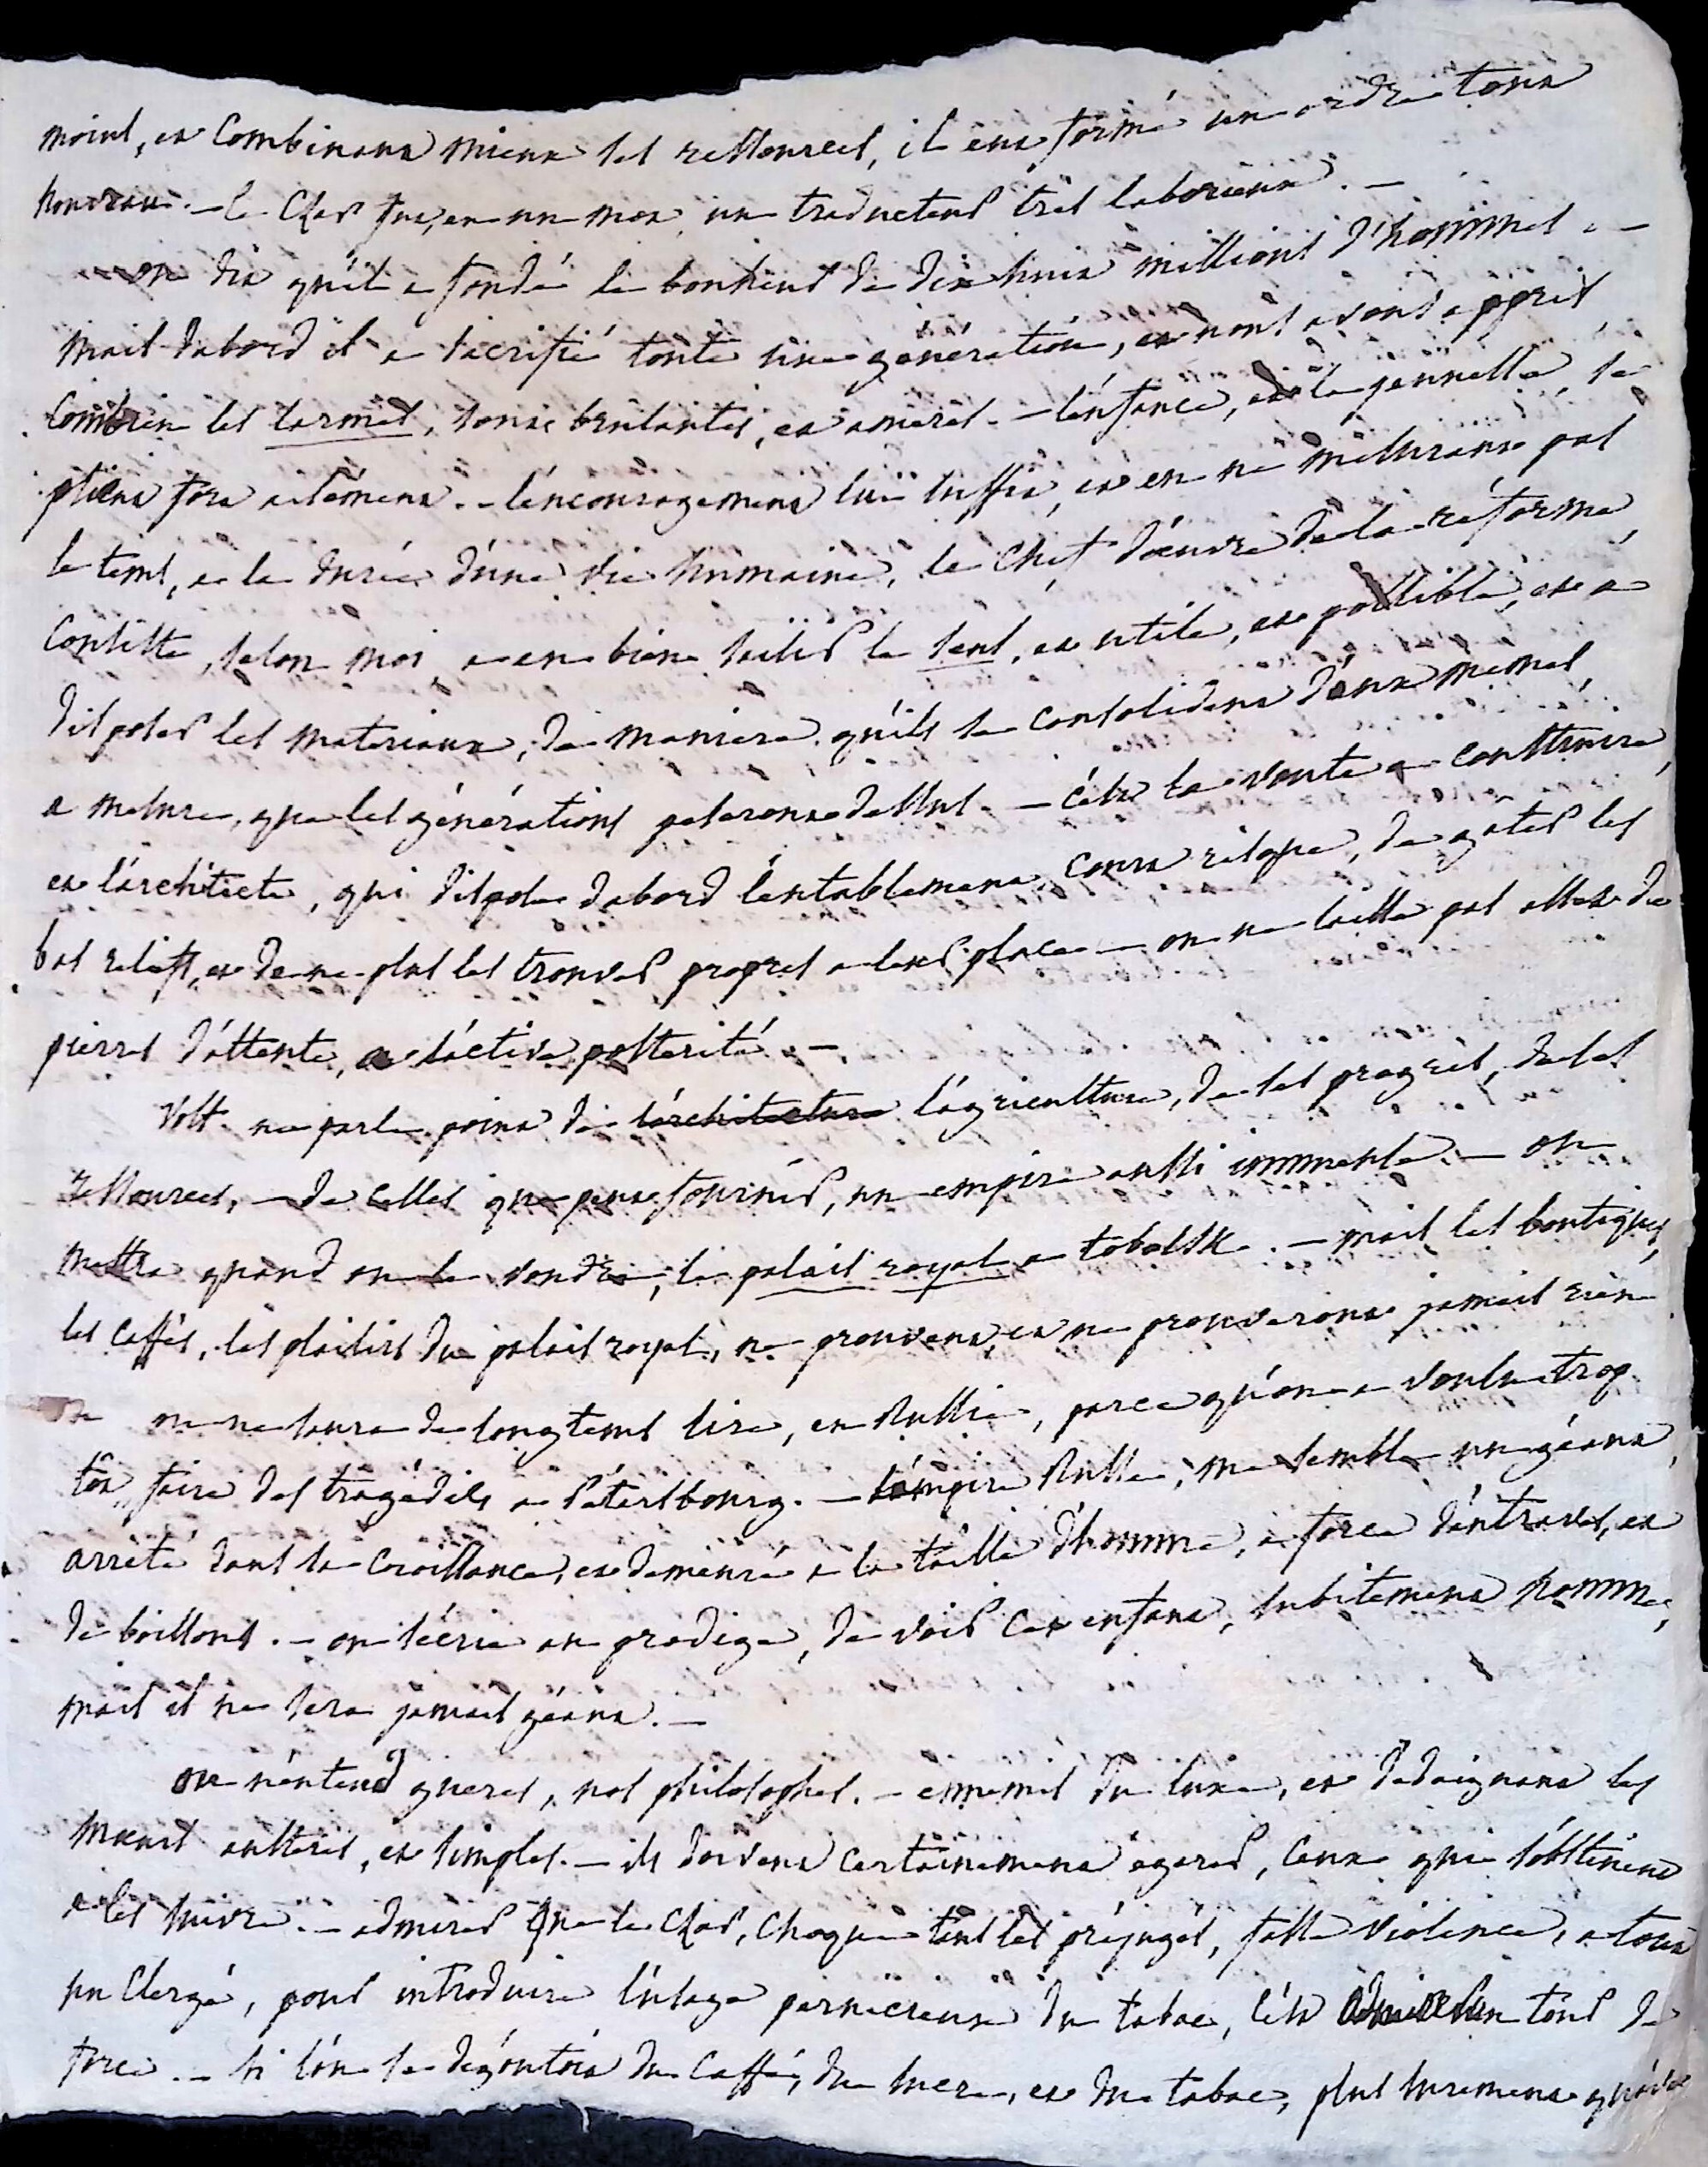 moins, et combinant mieux ses ressources, il eut formé un ordre tout
nouveau. — le Czar fut, en un mot, un traducteur très laborieux. —
on dit qu'il a fondé le bonheur de dix huit millions d'hommes. —
mais dabord il a sacrifié toute une génération, et nous avons appris
combien les larmes, sont brulantes, et ameres. — l'enfance, et la jeunesse, se
plient fort aisément. — l'encouragement lui suffit, et en ne mesurant pas
le tems, a la durée d'une vie humaine, le chef d'œuvre de la réforme,
consiste, selon moi, a en bien saisir le seul, et utile, et possible, et a
disposer les materiaux, de maniere qu'ils se consolident d'eux memes,
a mesure, que les générations peseront dessus. — c'est la voute a construire,
et l'architecte, qui dispose dabord l'entablement, court risque, de gater les
bas reliefs, et de ne plus les trouver propres a leur place — on ne laisse pas assez de
pierres d'attente, a l'active postérité. —
Volt. ne parle point de l'architecture l'agriculture, de ses progrès, de ses
ressources, — de celles que peut fournir, un empire aussi immense. — on
mettra quand on le voudra, le palais royal a tobolsk. — mais les boutiques,
les caffés, les plaisirs du palais royal, ne prouvent, et ne prouveront jamais rien
on ne saura de longtems lire, en Russie, parce qu'on a voulu trop
tôt, faire des tragédies a Pétersbourg. — l'empire Russe, me semble un géant,
arrêté dans sa croissance, et demeuré a la taille d'homme, a force d'entraves, et
de boissons. — on s'écrie au prodige, de voir cet enfant, subitement homme,
mais il ne sera jamais géant. —
on n'entend gueres, nos philosophes. — ennemis du luxe, et dédaignant les
mœurs austeres, et simples. — ils doivent certainement égarer, ceux qui s'obstinent
a les suivre. — admirer que le Czar, choque tous les préjugés, fasse violence, a tout
un clergé, pour introduire l'usage pernicieux du tabac, c'est un tour de
force. — si l'on se dégoutoit du caffé, du sucre, et du tabac, plus surement